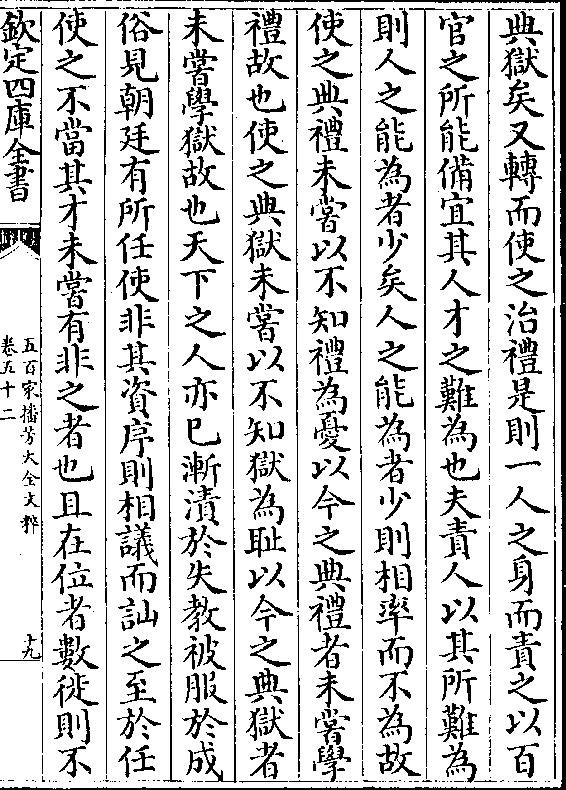 典獄矣又轉而使之治禮是則一人之身而責之以百
官之所能備宜其人才之難為也夫責人以其所難為
則人之能為者少矣人之能為者少則相率而不為故
使之典禮未嘗以不知禮為憂以今之典禮者未嘗學
禮故也使之典獄未嘗以不知獄為耻以今之典獄者
未嘗學獄故也天下之人亦已漸漬於失教被服於成
俗見朝廷有所任使非其資序則相議而訕之至於任
使之不當其才未嘗有非之者也且在位者數徙則不
欽定四庫全書
五百家播芳大全文粹
卷五十二
十九